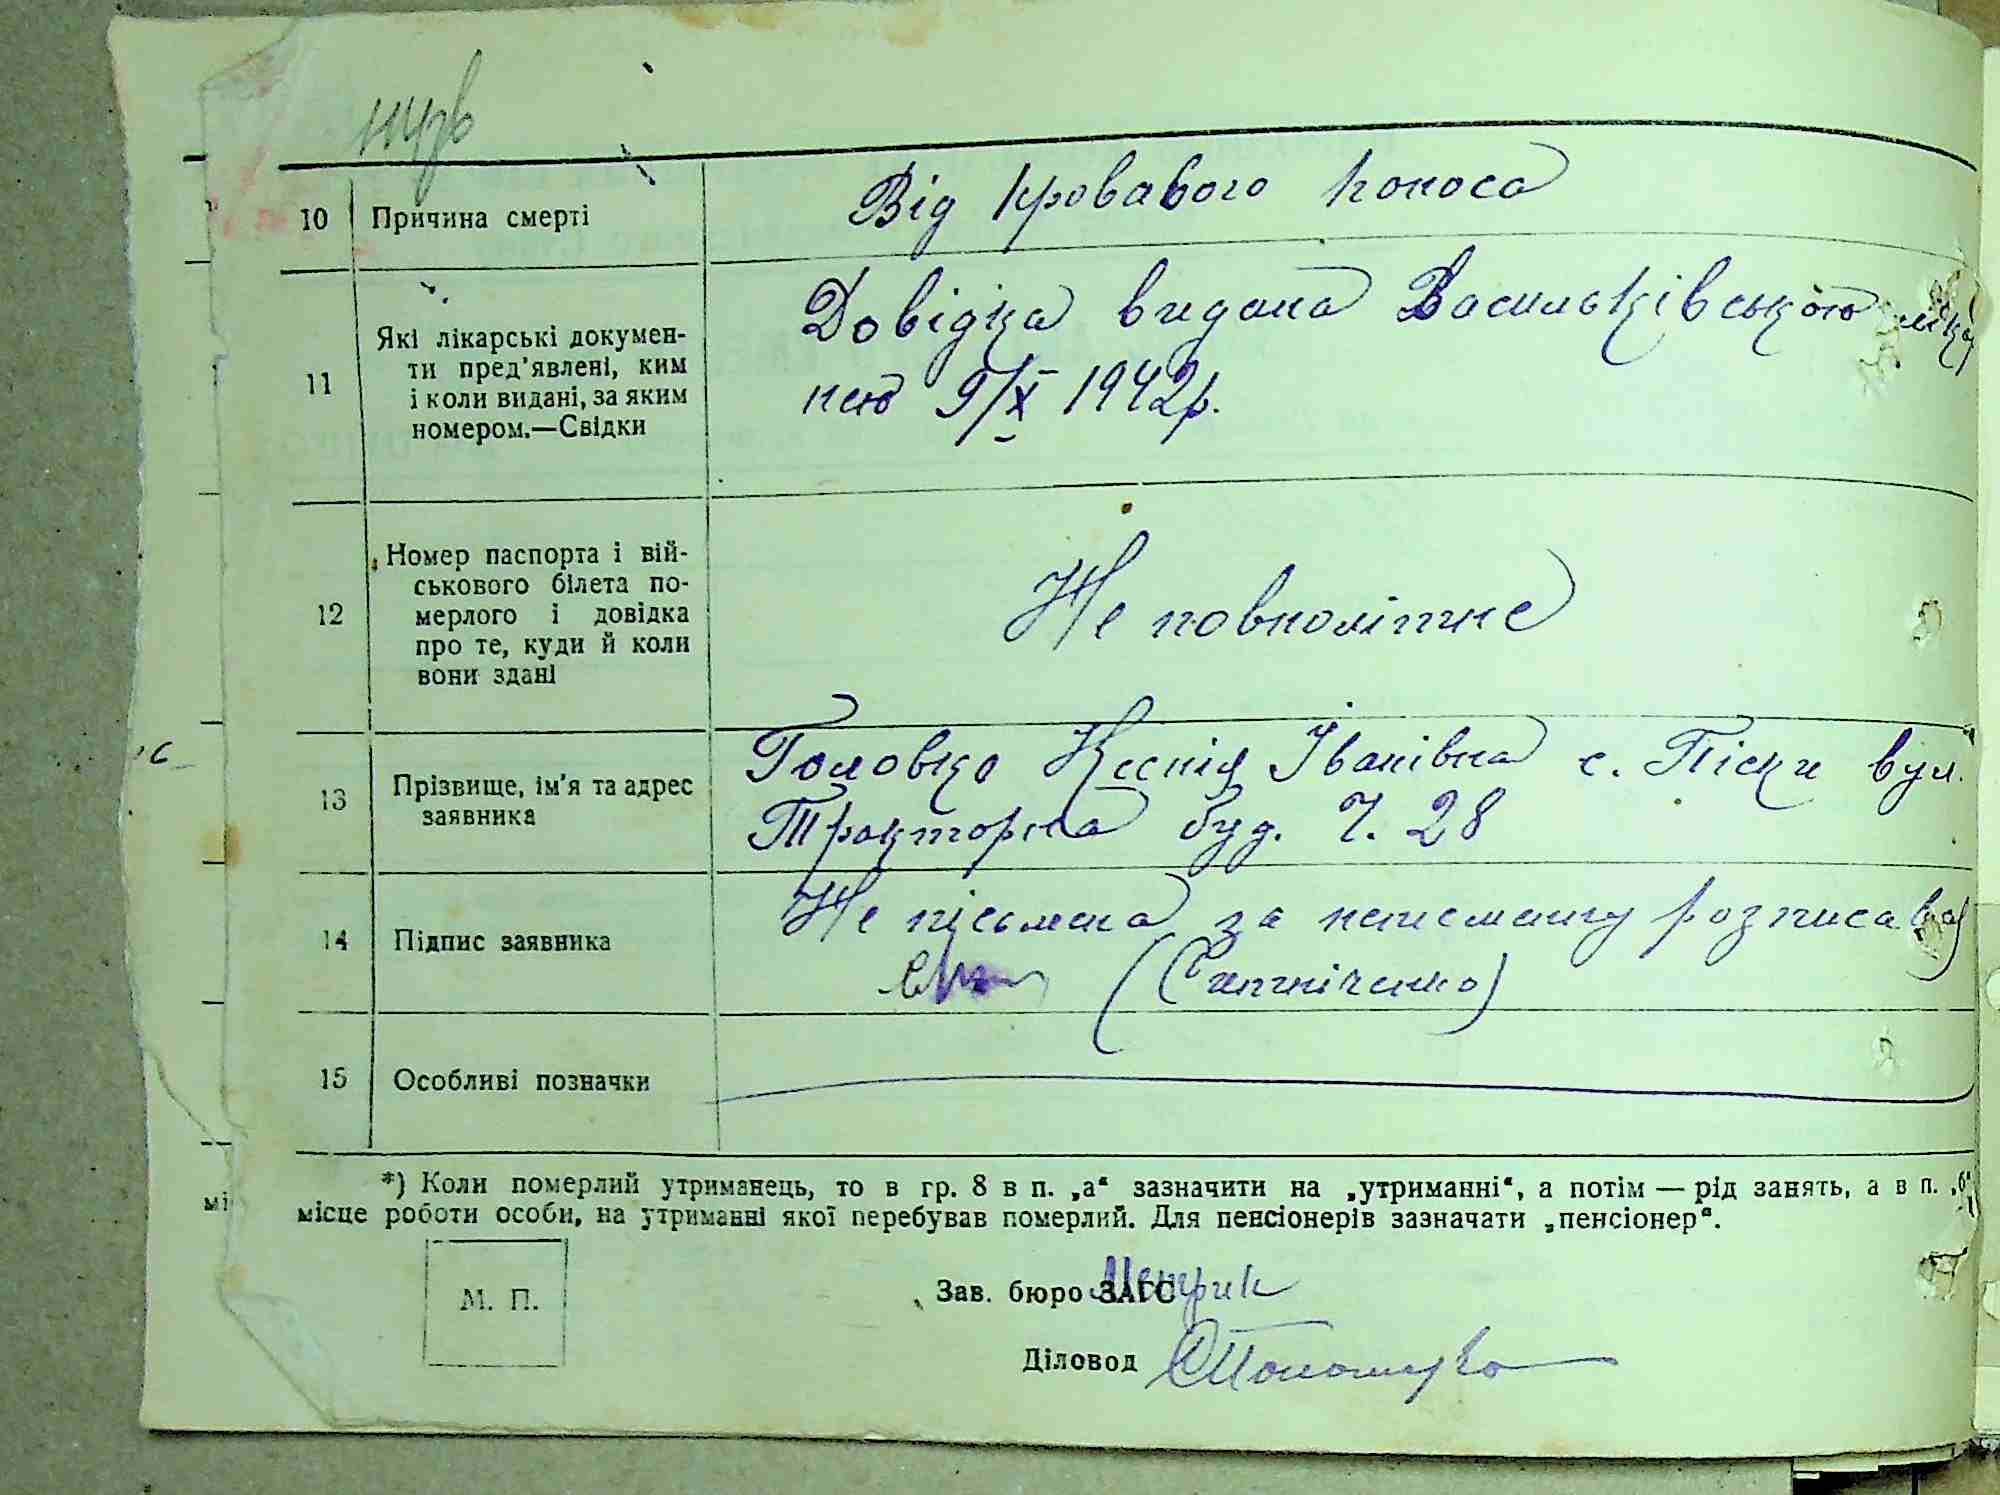 10 Причина смерті Від кровавого поноса
11 Які лікарські докумен-
ти пред’явлені, ким
і коли видані, за яким
номером.—Свідки
Довідка видана Васильківською лікар
нею 9/X 1942р.
12 Номер паспорта і вій-
ськового білета по-
мерлого і довідка
про те, куди й коли
вони здані
Не повнолітнє
13 Прізвище, ім’я та адрес
заявника
Головко Ксенія Іванівна с. Піски вул.
Тракторна буд. Ч. 28
14 Підпис заявника
Не пісьмена за неписменну розписа
15 Особливі позначки
*) Коли померлий утриманець, то в гр. 8 в п. „а“ зазначити на „утриманні“, а потім — рід занять, а в п. „б“
місце роботи особи, на утриманні якої перебував померлий. Для пенсіонерів зазначати „пенсіонер“.
М. П.
Зав. бюро ЗАГС Метрик
Діловод
мі